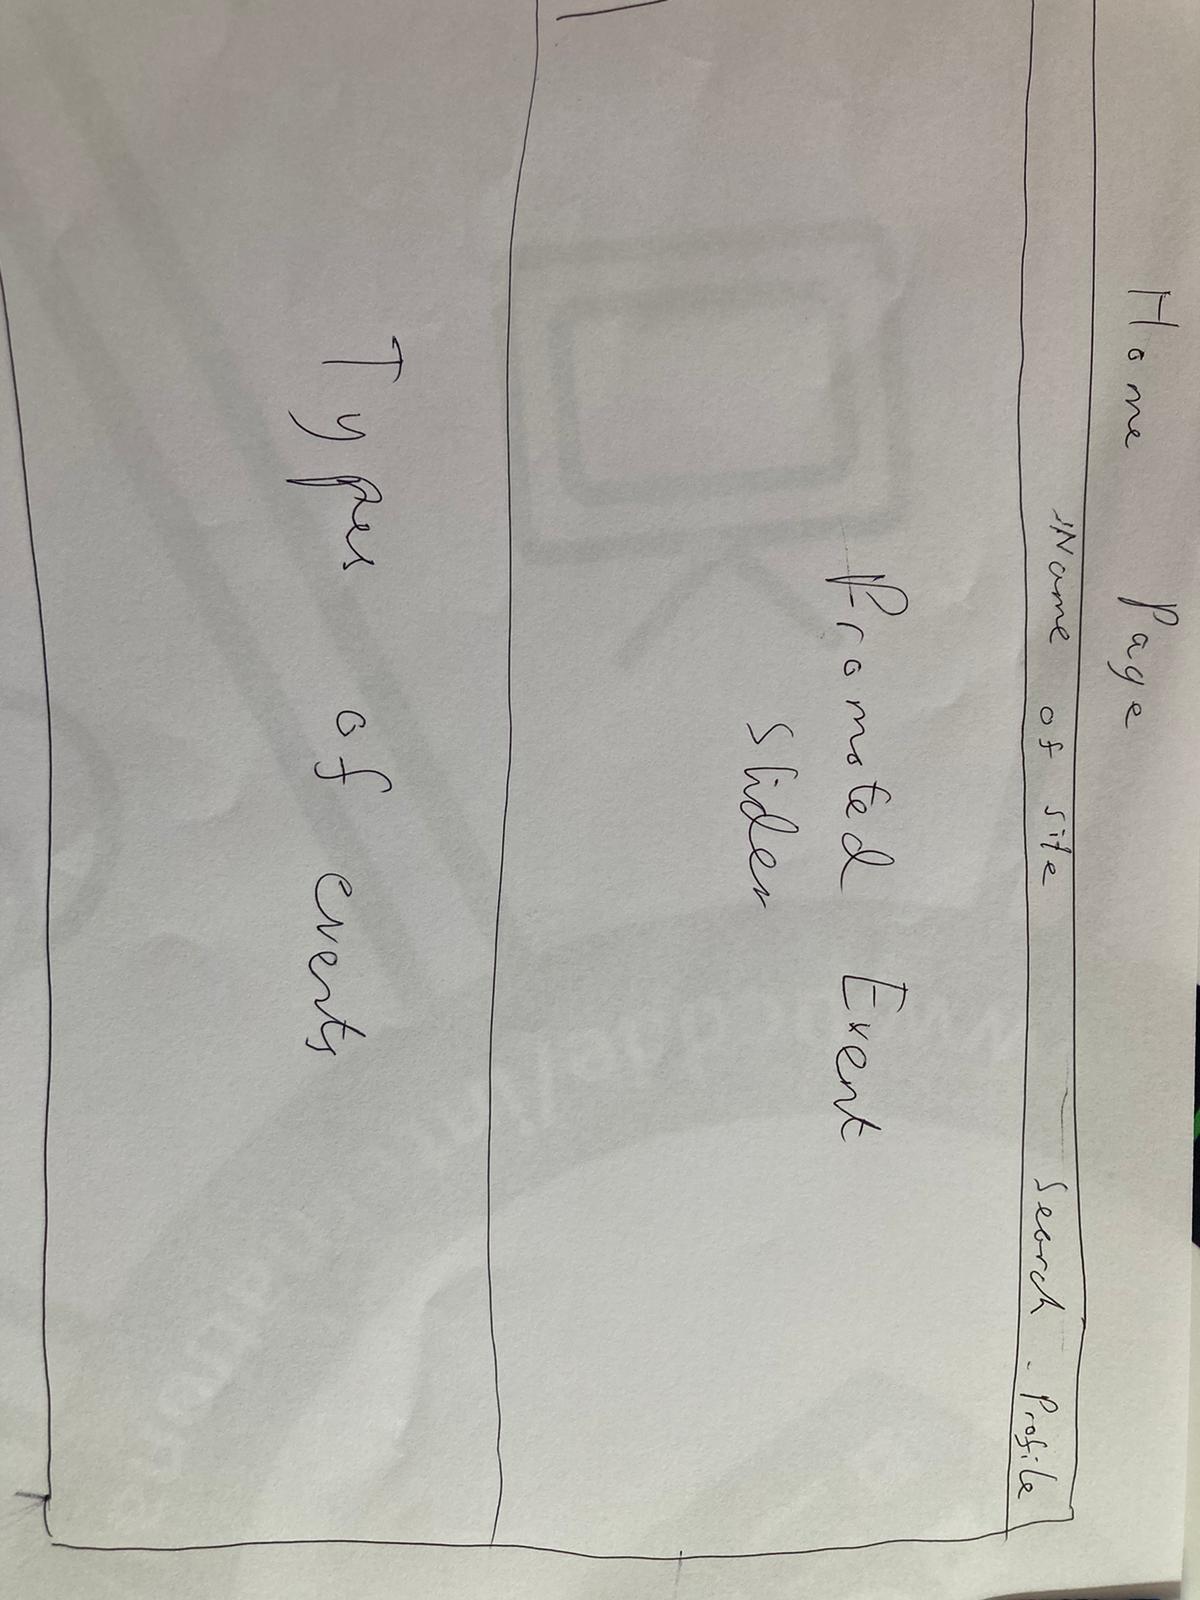 Home Page
Name of site Search . Profile
Promoted Event
Slider
Types of events